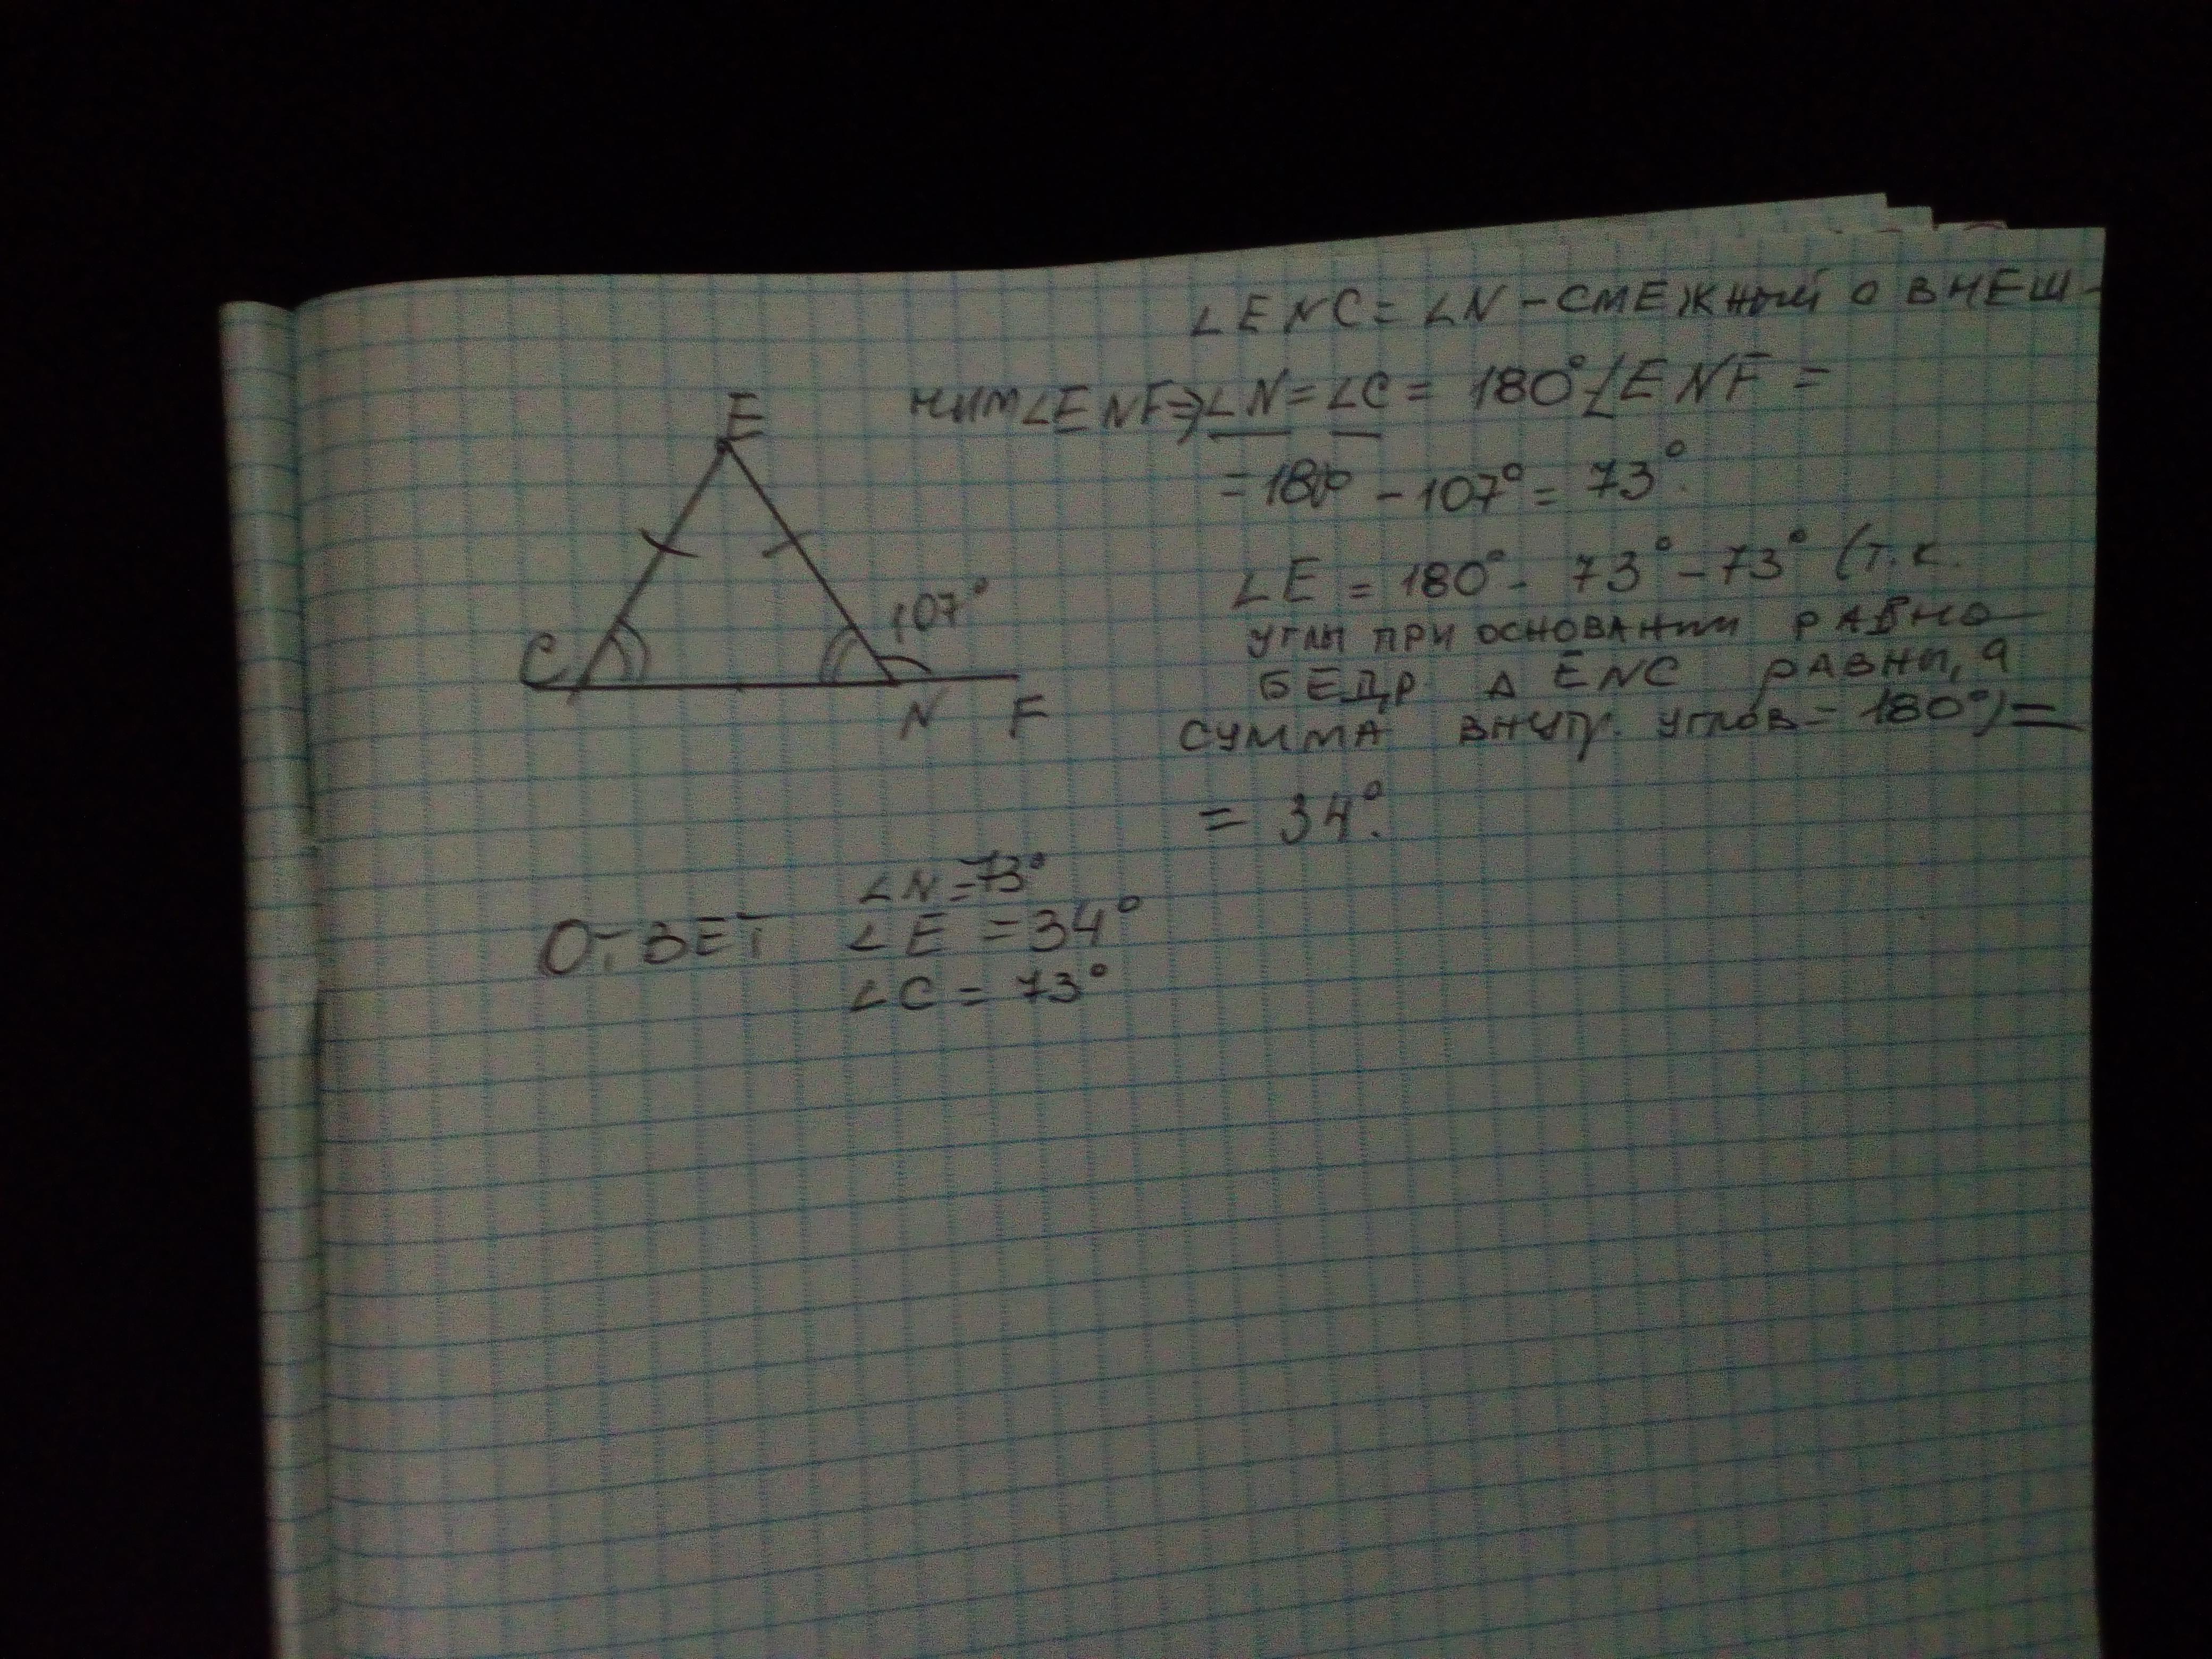 ∠ENC = ∠N - СМЕЖНЫЙ С ВНЕШ-
НИМ ∠ENF ⇒ ∠N = ∠C = 180° ∠ENF =
= 180° - 107° = 73°.
∠E = 180° - 73° - 73° (Т.К.
УГЛЫ ПРИ ОСНОВАНИИ РАВНО-
БЕДР Δ ENC РАВНЫ, А
СУММА ВНУТР. УГЛОВ = 180°) =
= 34°.
E
107°
C
N F
∠N = 73°
ОТВЕТ ∠E = 34°
∠C = 73°